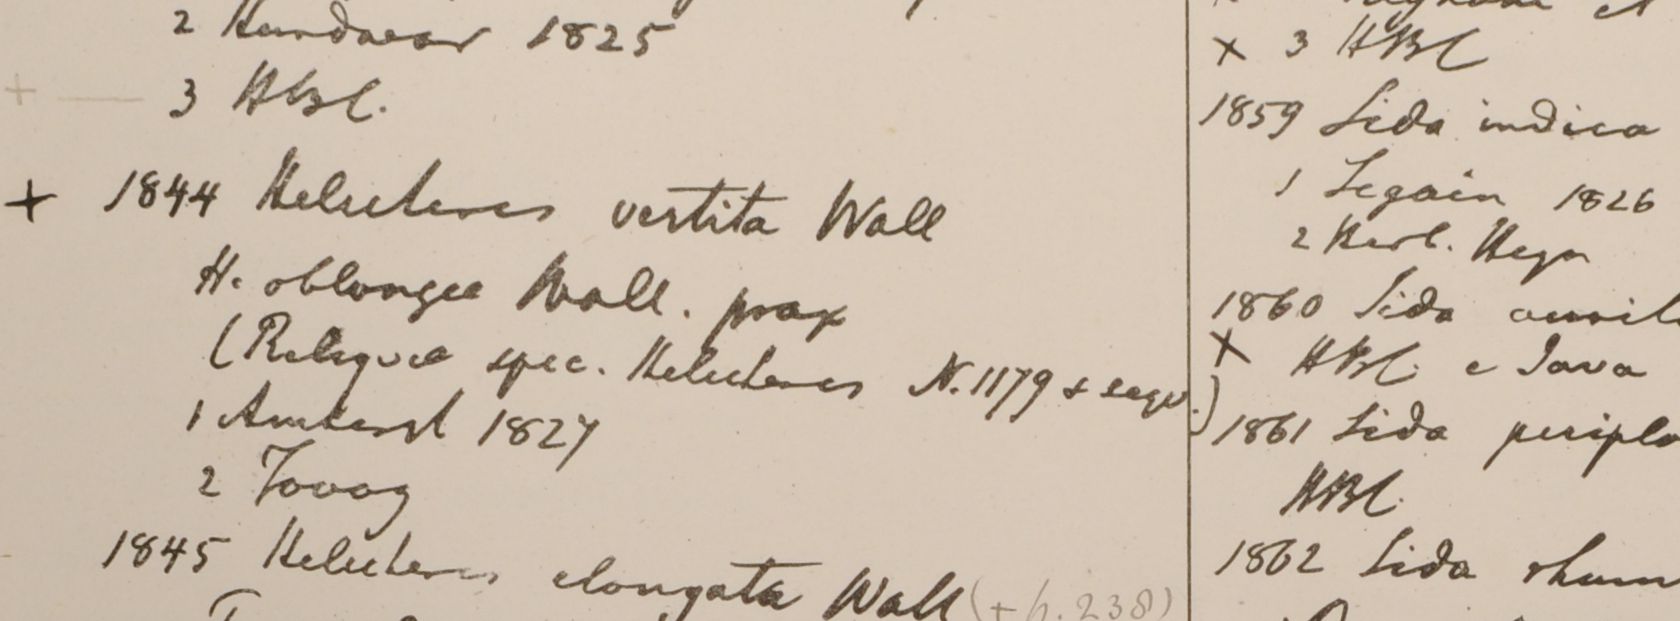 2 Hurdwar 1825
3 HBC.
+ 1844 Helicteres vestita Wall
H. oblonga Wall. prox
(Reliqua spec. Helicteres N. 1179 & sequ.)
1 Amherst 1827
2 Tavoy
1845 Helicteres elongata Wall (+ p. 238)
x 3 HBC
1859 Sida indica
1 Segain 1826
2 Herb. Heyn
1860 Sida
x HBC e Java
1861 Sida periplo
HBC.
1862 Sida rhom